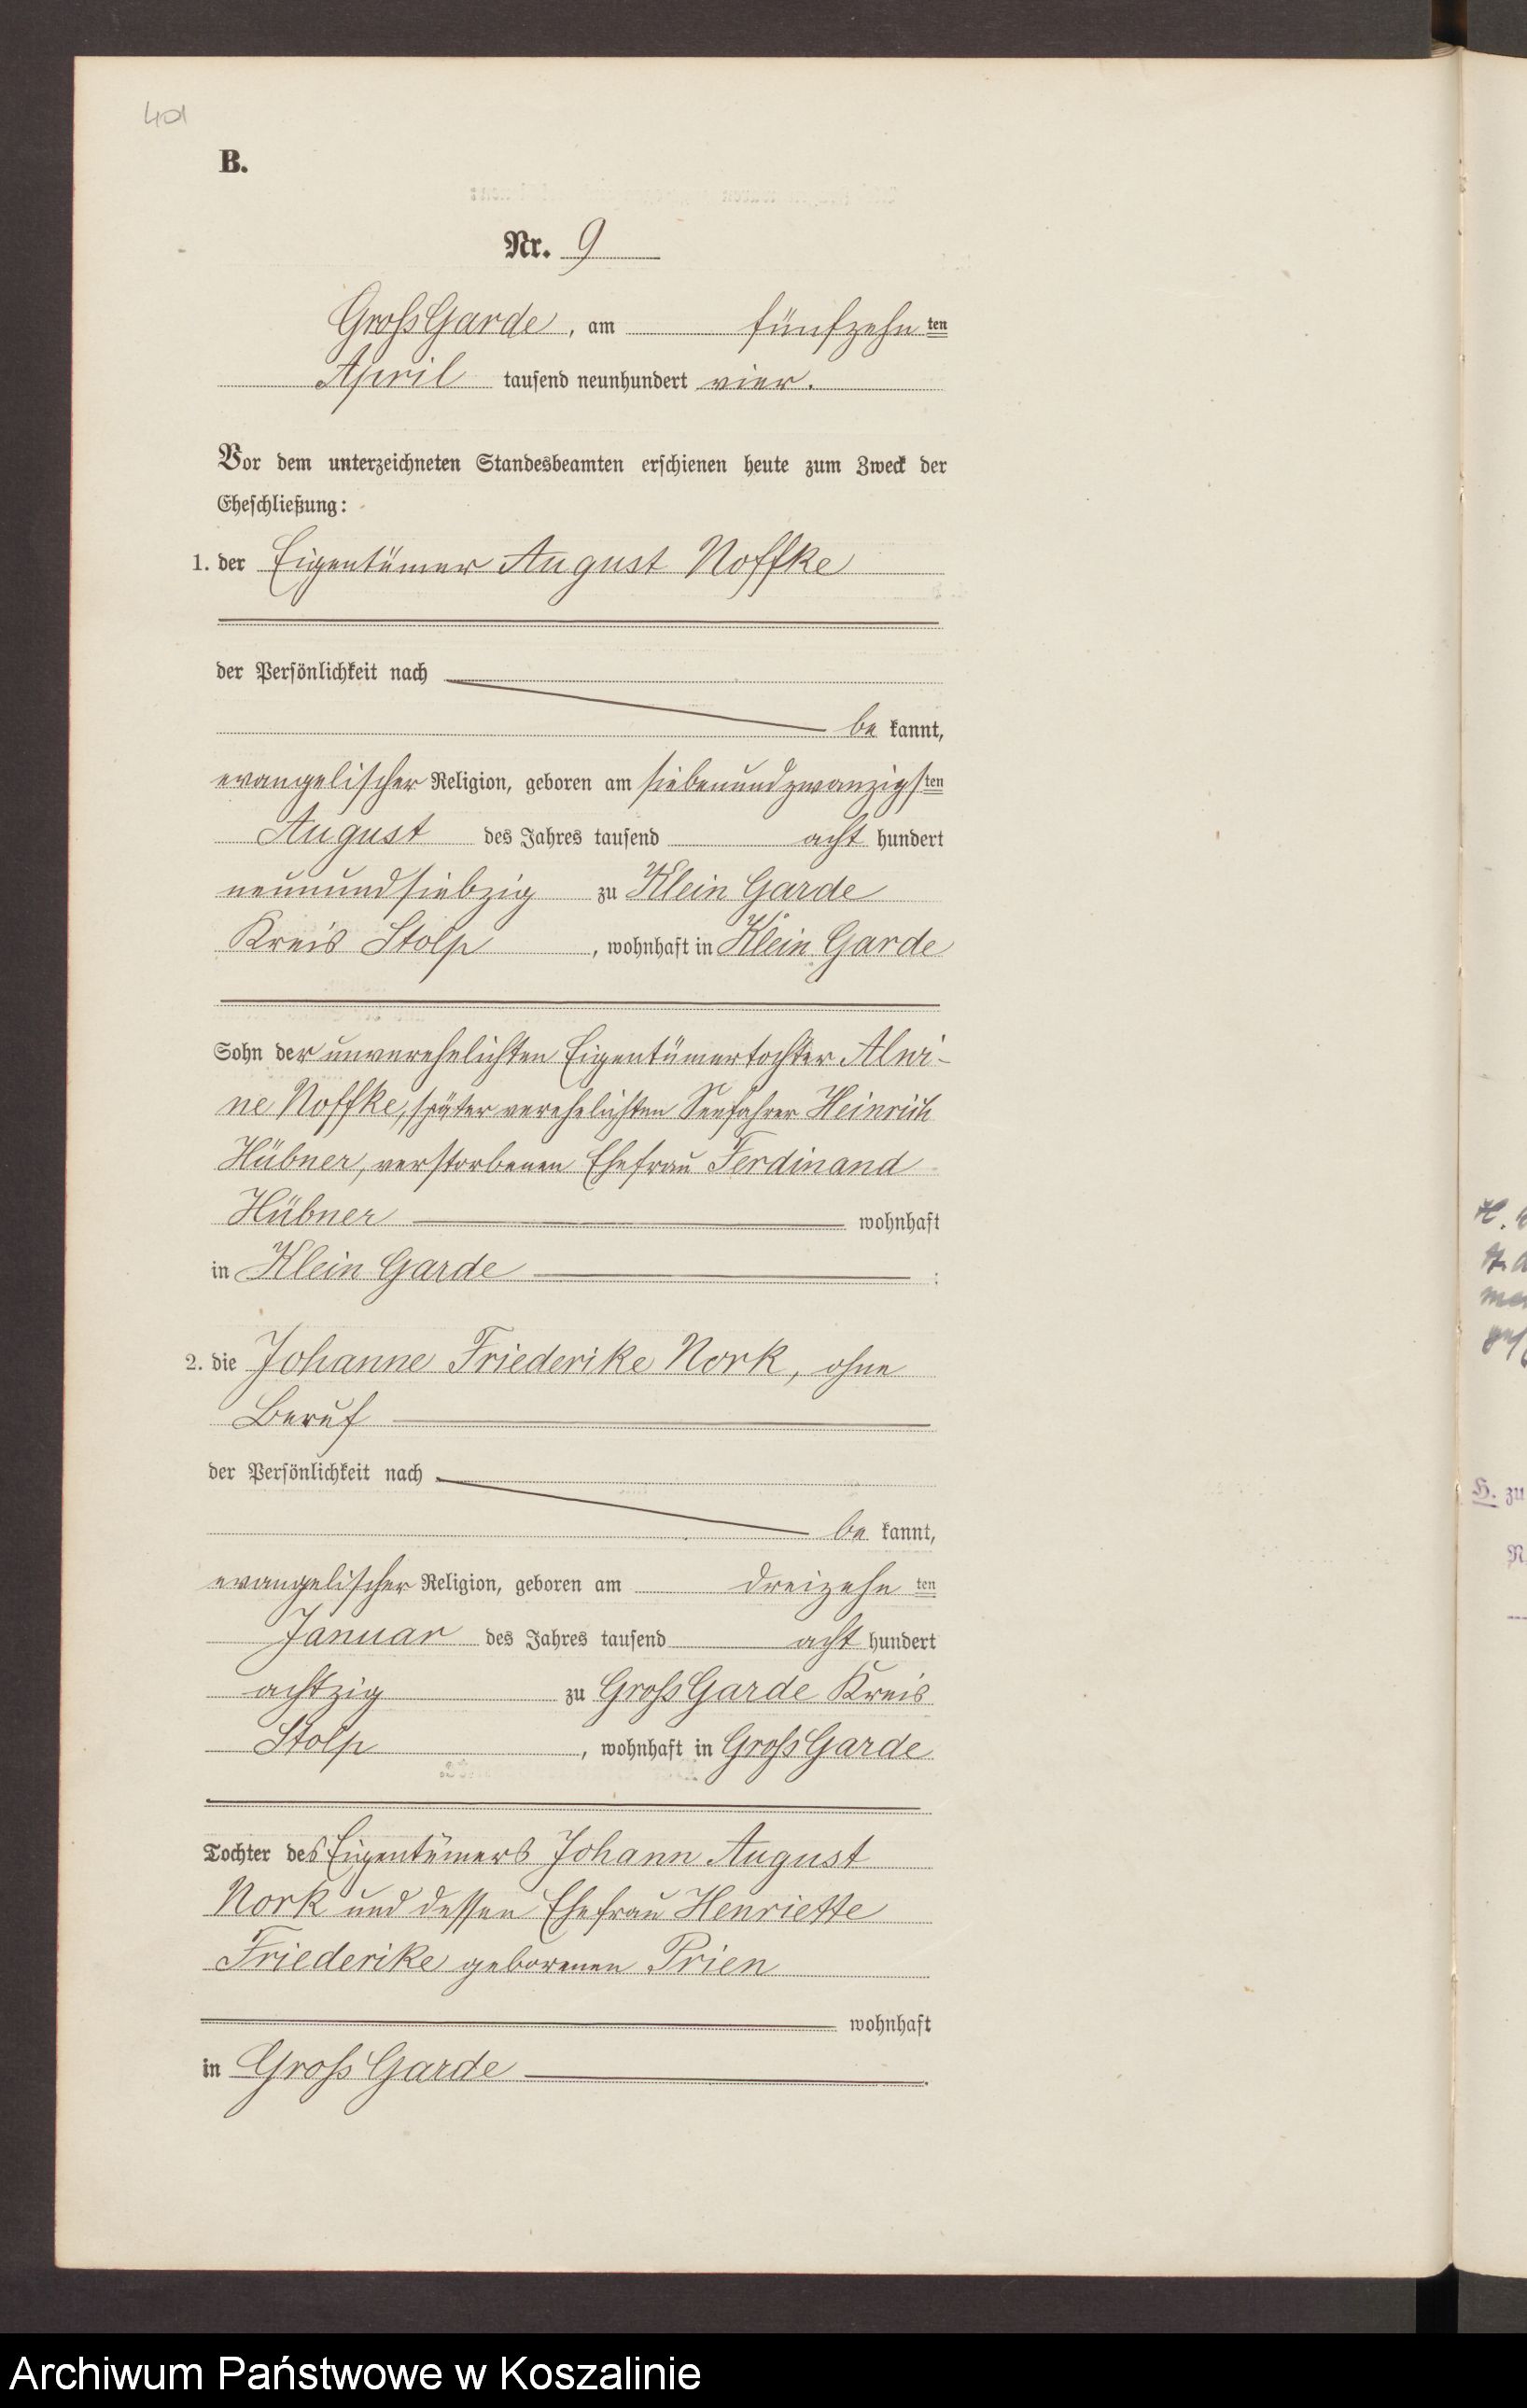 401
B.
Nr. 9
Groß Garde, am fünfzehn ten
April tausend neunhundert vier.
Vor dem unterzeichneten Standesbeamten erschienen heute zum Zweck der
Eheschließung:
1. der Eigentümer August Noffke
der Persönlichkeit nach
be kannt,
evangelischer Religion, geboren am siebenundzwanzigsten
August des Jahres tausend acht hundert
neunundsiebzig zu Klein Garde
Kreis Stolp, wohnhaft in Klein Garde
Sohn der unverehelichten Eigentümertochter Alwi-
ne Noffke, später verehelichten Seefahrer Heinrich
Hübner, verstorbenen Ehefrau Ferdinand
Hübner wohnhaft
in Klein Garde :
2. die Johanne Friederike Nork, ohne
Beruf
der Persönlichkeit nach
be kannt,
evangelischer Religion, geboren am dreizehn ten
Januar des Jahres tausend acht hundert
achtzig zu Groß Garde Kreis
Stolp, wohnhaft in Groß Garde
Tochter des Eigentümers Johann August
Nork und dessen Ehefrau Henriette
Friederike geborenen Prien
wohnhaft
in Groß Garde
H. zu
Archiwum Państwowe w Koszalinie